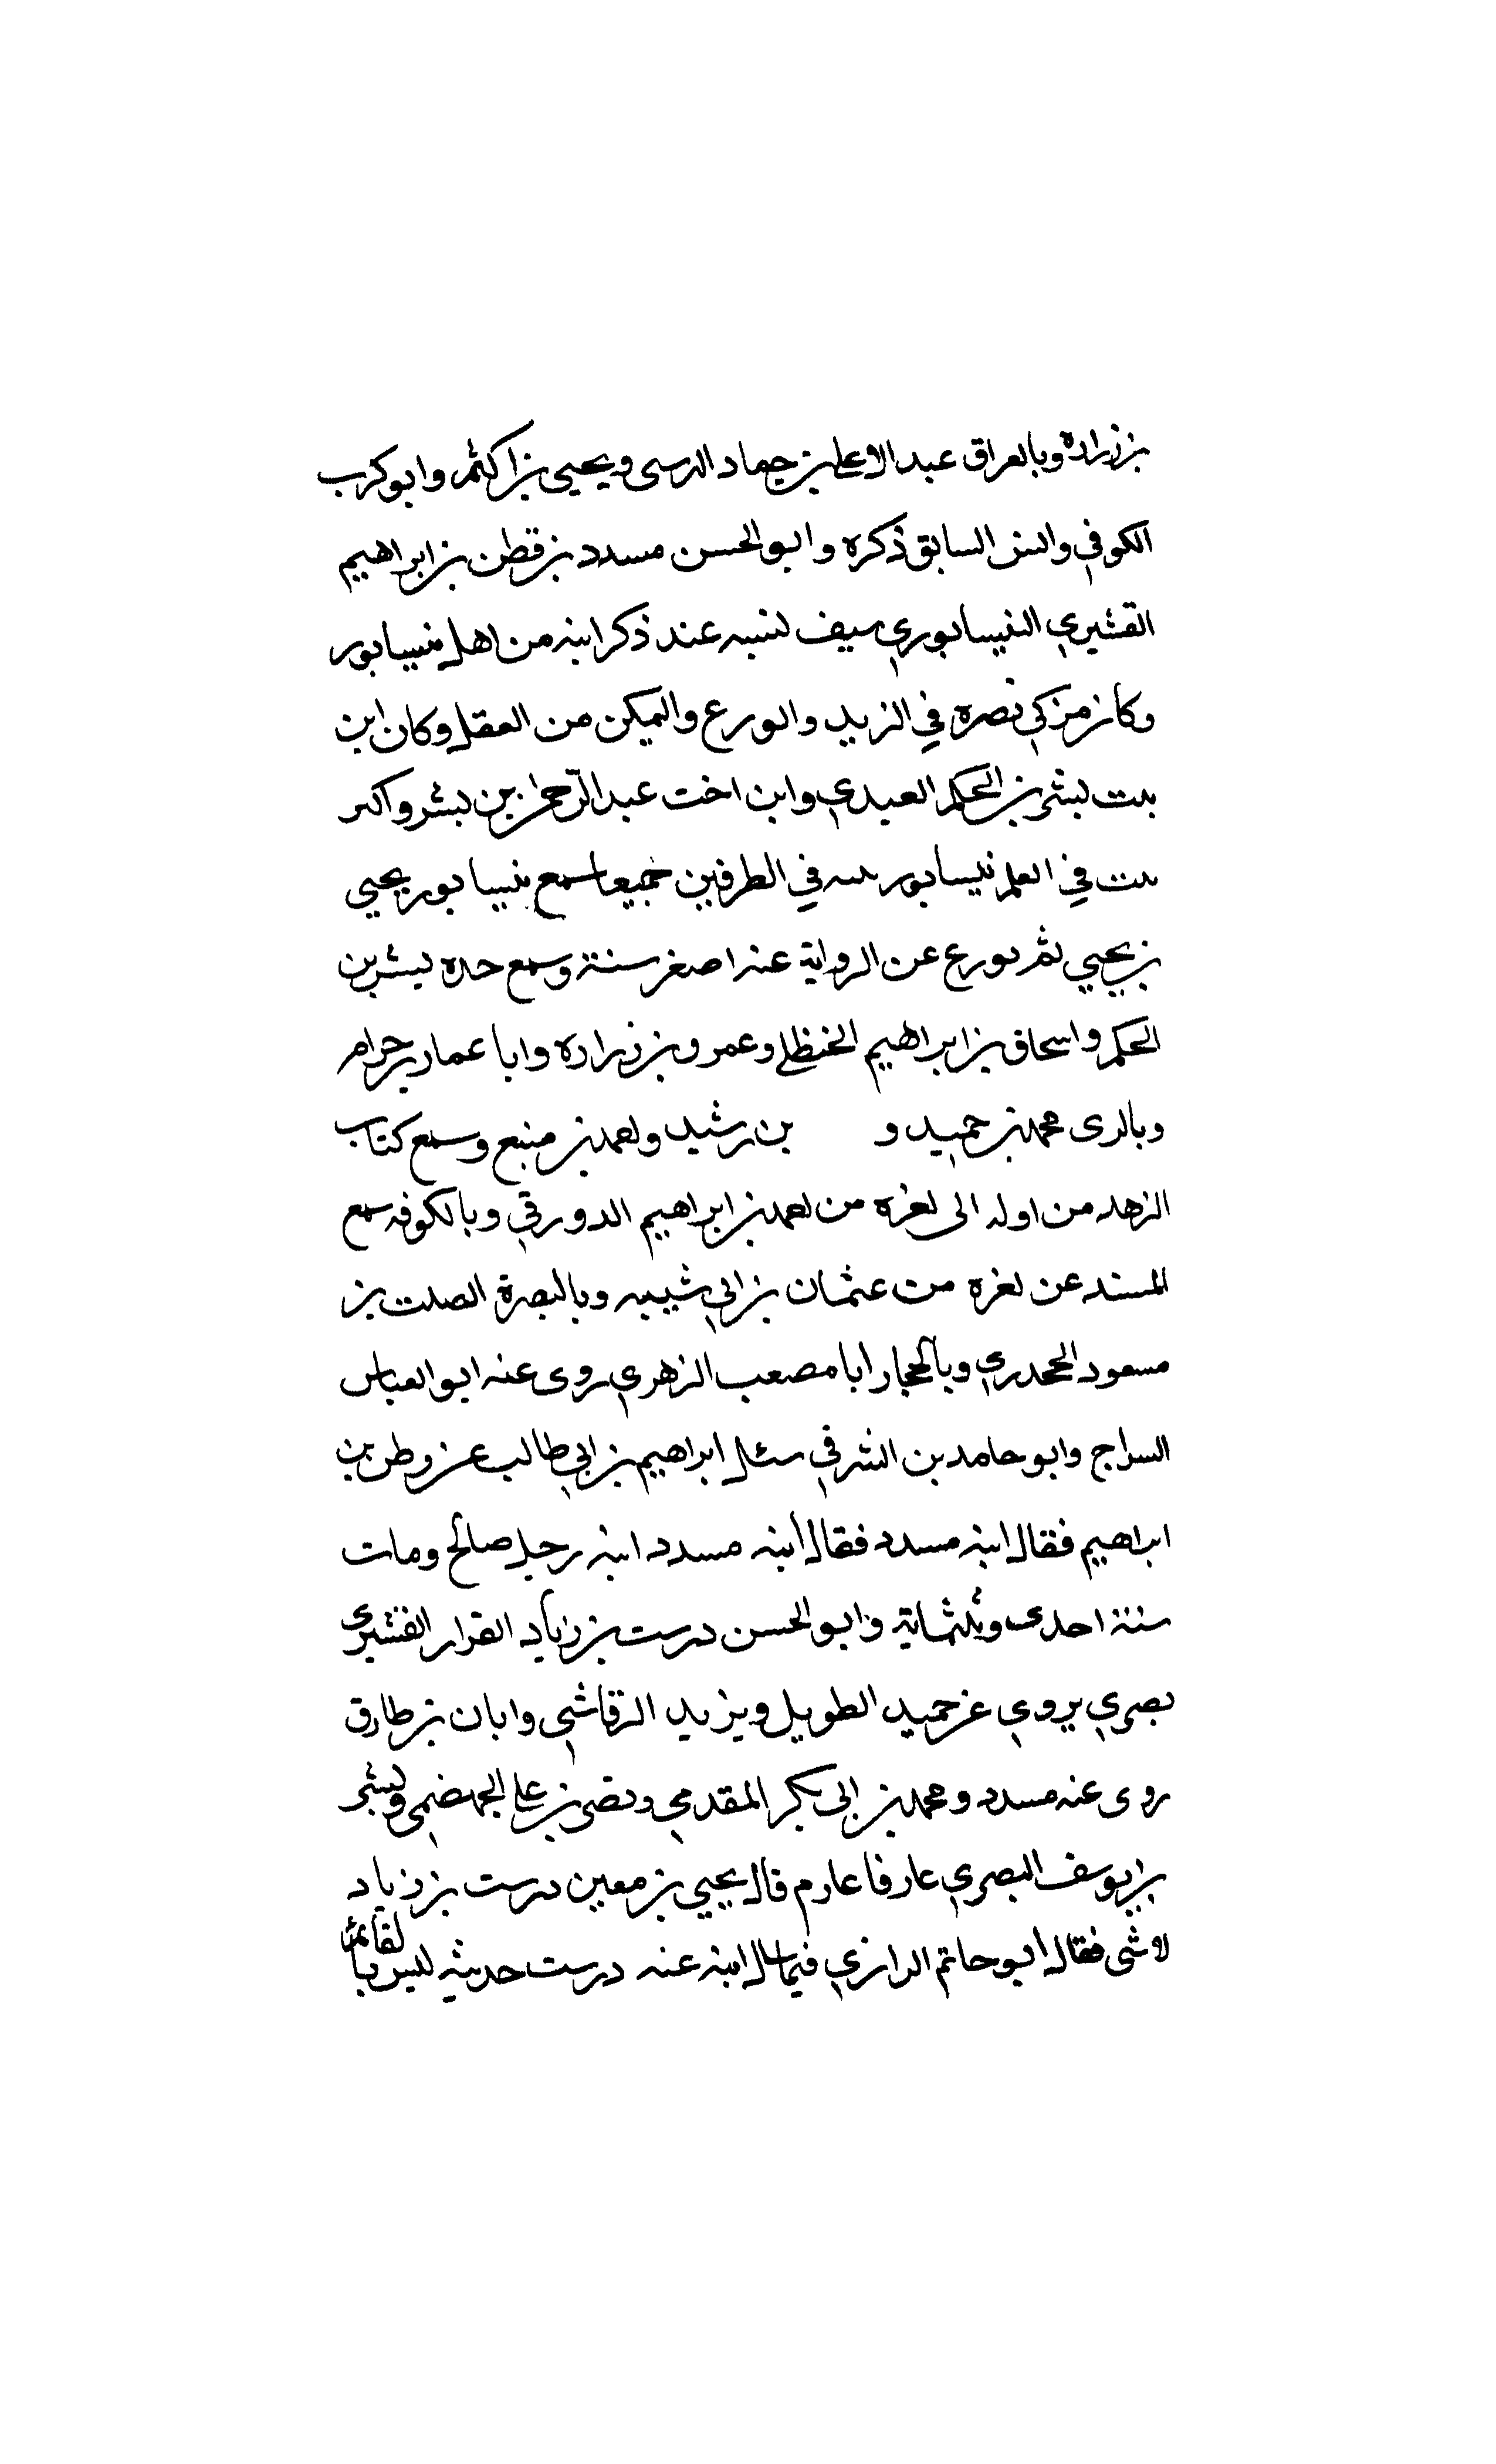 بن زراده وبالعراق عبد الاعلى بن حماد النرسى ويحيى بن اكثم وابو كرب
الكوفي وابنى السابق ذكره وابو الحسن مسدد بن قطن بن ابراهيم
القشيري النيسابوري سيف لنسبه عند ذكر ابنه من اهل نيسابور
وكان مزكي نصره في الزيد والورع والتمكن من العقل وكان ابن
بنت بشر بن الحكم العبدي وابن اخت عبد الرحمن بن بشر واكبر
بنت في العلم نيسابور بنته في الطرفين جميعا سمع بنيسابور يحيي
بن يحيي ثم تورع عن الرواية عنه اصغر سنة وسمع جده بيشر بن
الحكم واسحاق بن ابراهيم الحنظلي وعمرو بن زراده وابا عمار بن حرام
وبالرى محمد بن حميد و بن رشيد واحمد بن منيع وسمع كتاب
الزهد من اوله الى لغره من احمد بن ابراهيم الدورقي وبالكوفه سمع
المسند عن لغره من عثمان بن ابي شيبه وبالبصرة الصلت بن
مسعود الجحدري وبالحجاز ابا مصعب الزهري روى عنه ابو العباس
السراج وابو حامد بن الشرقي سئل ابراهيم بن ابي طالب عن وطن بن
ابراهيم فقال ابنه مسدد فقال ابنه مسدد ابنه رجل صالح ومات
سنة احدى وثلثماية وابو الحسن درست بن زياد القزاز القشيري
بصري يروي عن حميد الطويل ويزيد الرقاشي وابان بن طارق
روى عنه مسدد ومحمد بن ابى بكر المقدمي ونصر بن علي الجهضمي وبشر
بن يوسف البصري عارفا عارم قال يحيي بن معين درست بن زياد
لا شى فقال ابو حاتم الرازي فيما سال ابنه عنه درست حديثه ليس بالقائم